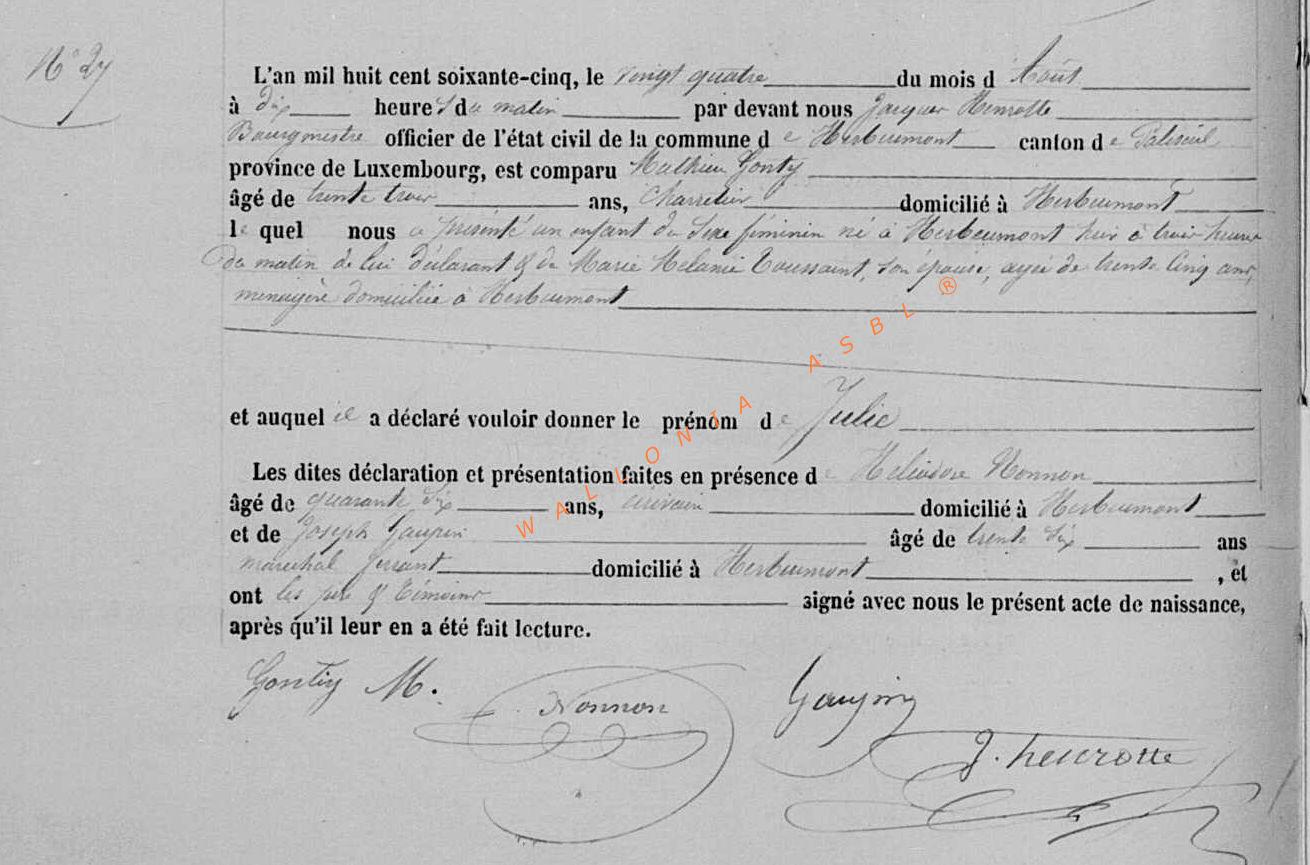 N° 27
L'an mil huit cent soixante-cinq, le vingt quatre du mois d Août
à dix heures du matin par devant nous Jacques Henrotte
Bourgmestre officier de l'état civil de la commune de Herbeumont canton de Paliseul
province de Luxembourg, est comparu Mathieu Gonty
âgé de trente trois ans, Charretier domicilié à Herbeumont
le quel nous a présenté un enfant du sexe féminin né à Herbeumont hier à trois heures
du matin de lui déclarant & de Marie Mélanie Toussaint, son épouse, agée de trente cinq ans,
menagère domiciliée à Herbeumont
et auquel il a déclaré vouloir donner le prénom de Julie
Les dites déclaration et présentation faites en présence de Heliodore Nonnon
âgé de quarante six ans, domicilié à Herbeumont
et de Joseph Gaupin âgé de trente six ans
maréchal ferrant domicilié à Herbeumont , et
ont les père & témoins signé avec nous le présent acte de naissance,
après qu'il leur en a été fait lecture.
Gontiy M. Nonnon Gaupin
J. henrotte
WALLONIA ASBL ®